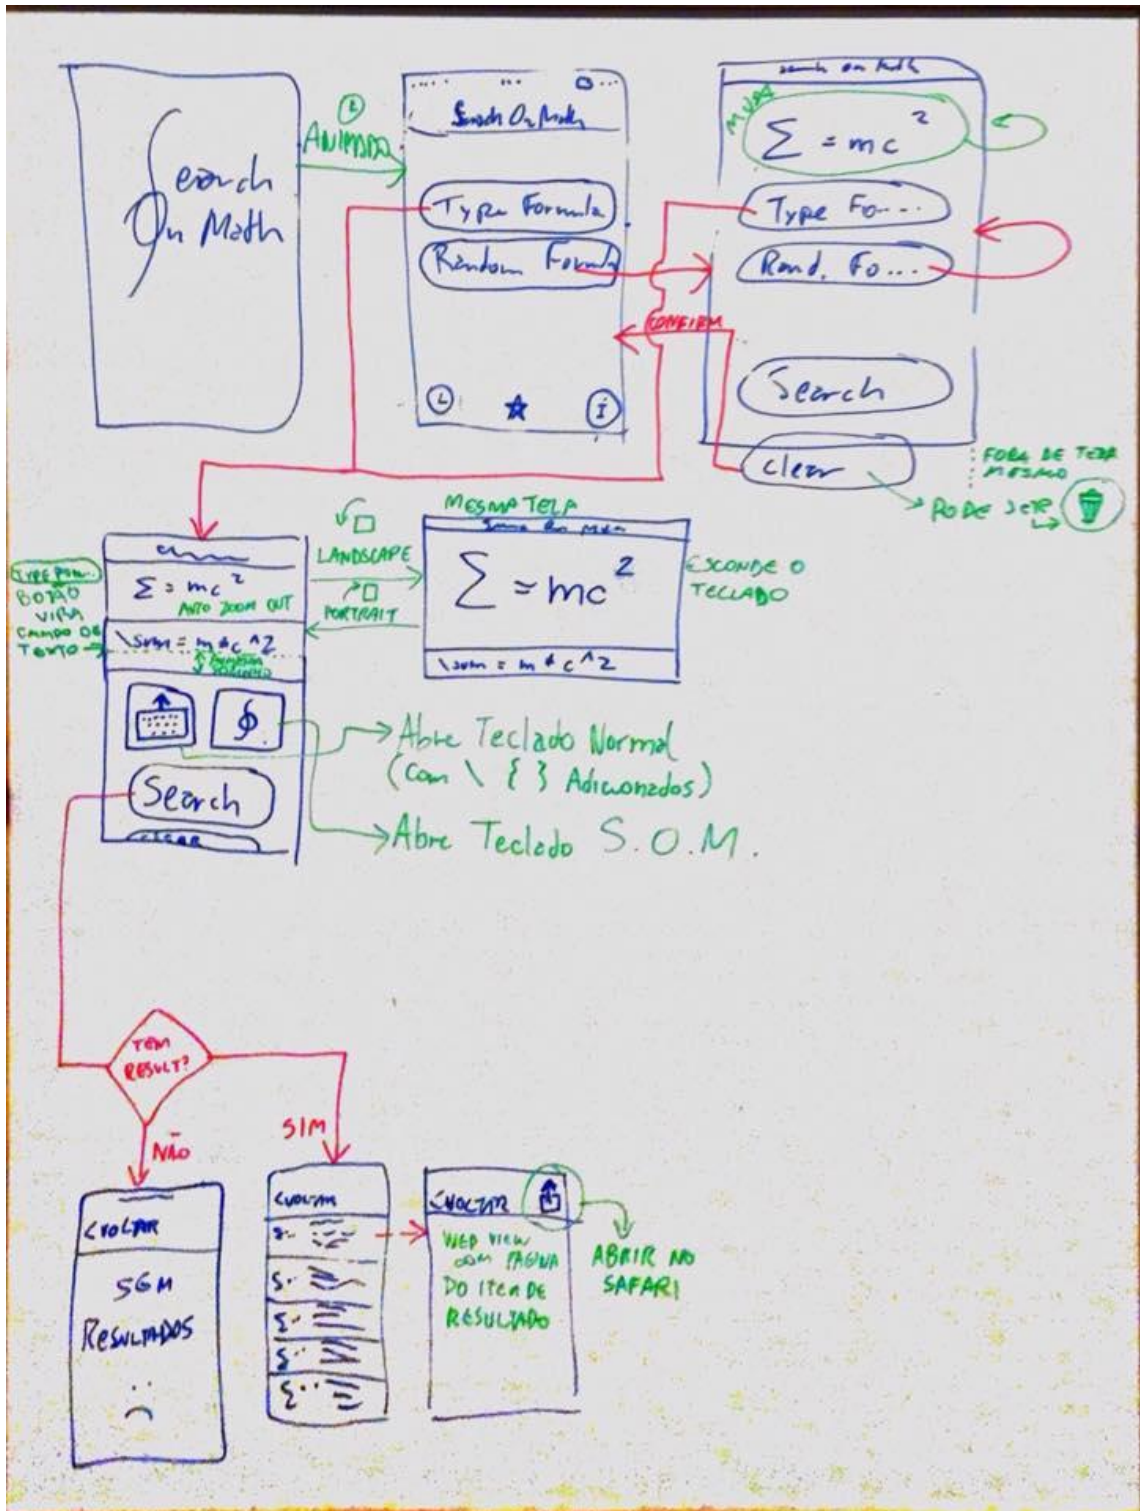 Search
On Math
ANIMADO
Search On Math
Type Formula
Random Formula
i
Search On Math
Σ = mc²
Type Fo....
Rand. Fo...
CONFIRM
Search
clear
FORA DE TELA
MESMO
PODE SER
TYPE FOR...
BOTÃO
VIRA
CAMPO DE
TEXTO
Σ = mc²
AUTO ZOOM OUT
\sum = m*c^2
LANDSCAPE
PORTRAIT
MESMA TELA
Σ = mc²
\sum = m*c^2
ESCONDE O
TECLADO
Search
clear
Abre Teclado Normal
(com \ { } Adicionados)
Abre Teclado S.O.M.
TEM
RESULT?
NÃO
SIM
<VOLTAR
SEM
RESULTADOS
<VOLTAR
<VOLTAR
WEB VIEW
COM PÁGINA
DO ITEM DE
RESULTADO
ABRIR NO
SAFARI